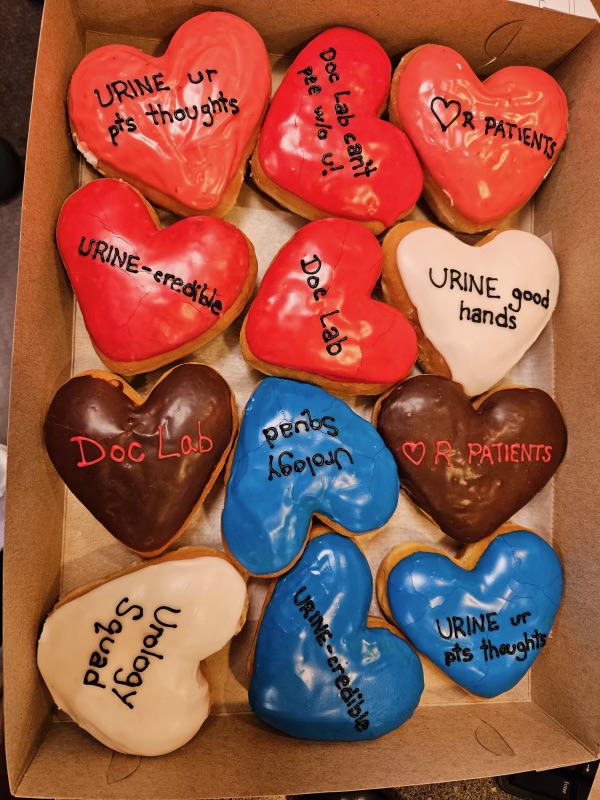 URINE ur
pts thoughts
Doc Lab can't
pee w/o u!
♡ R PATIENTS
URINE-credible
Doc Lab
URINE good
hands
Doc Lab
Urology
Squad
♡ R PATIENTS
Urology
Squad
URINE-credible
URINE ur
pts thoughts